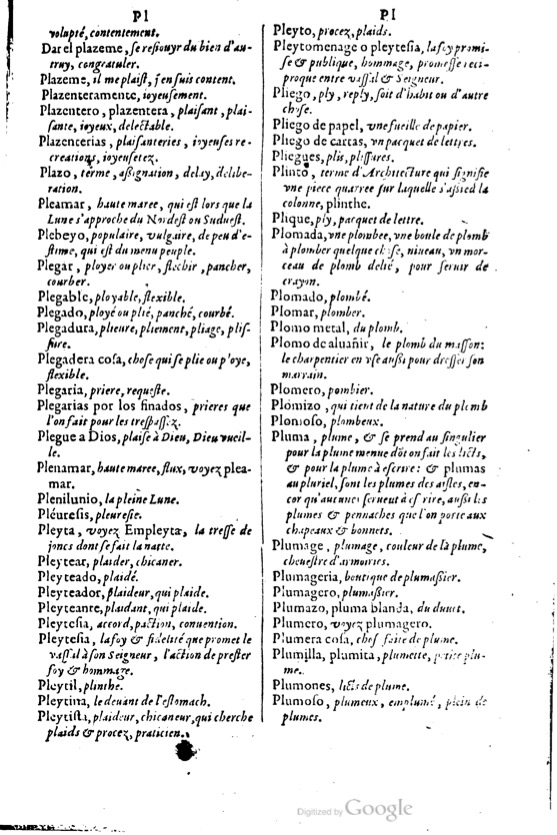 PI
volupté, contentement.
Dar el plazeme, se resiouyr du bien d'au-
truy, congratuler.
Plazeme, il me plaist, j'en suis content.
Plazenteramente, ioyeusement.
Plazentero, plazentera, plaisant, plai-
sante, ioyeux, delectable.
Plazenterias, plaisanteries, ioyeuses re-
creations, ioyeusetez.
Plazo, terme, assignation, delay, delibe-
ration.
Pleamar, haute maree, qui est lors que la
Lune s'approche du Nordest ou Suduest.
Plebeyo, populaire, vulgaire, de peu d'e-
stime, qui est du menu peuple.
Plegar, ployer ou plier, flechir, pancher,
courber.
Plegable, ployable, flexible.
Plegado, ployé ou plié, panché, courbé.
Plegadura, plieure, pliement, pliage, plis-
sure.
Plegadera cosa, chose qui se plie ou ploye,
flexible.
Plegaria, priere, requeste.
Plegarias por los finados, prieres que
l'on fait pour les trespassez.
Plegue a Dios, plaise à Dieu, Dieu vueil-
le.
Plenamar, haute maree, flux, voyez plea-
mar.
Plenilunio, la pleine Lune.
Pléuresis, pleuresie.
Pleyta, voyez Empleyta, la tresse de
joncs dont se fait la natte.
Pleytear, plaider, chicaner.
Pleyteado, plaidé.
Pleyteador, plaideur, qui plaide.
Pleyteante, plaidant, qui plaide.
Pleytesia, accord, paction, conuention.
Pleytesia, la foy & fidelité que promet le
vassal à son Seigneur, l'action de prester
foy & hommage.
Pleytil, plinthe.
Pleytina, le deuant de l'estomach.
Pleytista, plaideur, chicaneur, qui cherche
plaids & procez, praticien.
PI
Pleyto, procez, plaids.
Pleytomenage o pleytesia, la foy promi-
se & publique, hommage, promesse reci-
proque entre vassal & Seigneur.
Pliego, ply, reply, soit d'habis ou d'autre
chose.
Pliego de papel, vne fueille de papier.
Pliego de cartas, vn pacquet de lettres.
Pliegues, plis, plissures.
Plinto, terme d'Architecture qui signifie
vne piece quarree sur laquelle s'assied la
colonne, plinthe.
Plique, ply, pacquet de lettre.
Plomada, vne plombee, vne boule de plomb
à plomber quelque chose, niueau, vn mor-
ceau de plomb delié, pour seruir de
crayon.
Plomado, plombé.
Plomar, plomber.
Plomo metal, du plomb.
Plomo de aluañir, le plomb du masson:
le charpentier en vse aussi pour dresser son
marrain.
Plomero, pombier.
Plomizo, qui tient de la nature du plomb
Plomoso, plombeux.
Pluma, plume, & se prend au singulier
pour la plume menue dõt on fait les licts,
& pour la plume à escrire: & plumas
au pluriel, sont les plumes des aisles, en-
cor qu'aucunes seruent à escrire, aussi les
plumes & pennaches que l'on porte aux
chapeaux & bonnets.
Plumage, plumage, couleur de la plume,
cheuestre d'armoiries.
Plumageria, boutique de plumassier.
Plumagero, plumassier.
Plumazo, pluma blanda, du duuet.
Plumero, voyez plumagero.
Plumera cosa, chose faite de plume.
Plumilla, plumita, plumette, petite plu-
me.
Plumones, licts de plume.
Plumoso, plumeux, emplumé, plein de
plumes.
Digitized by Google